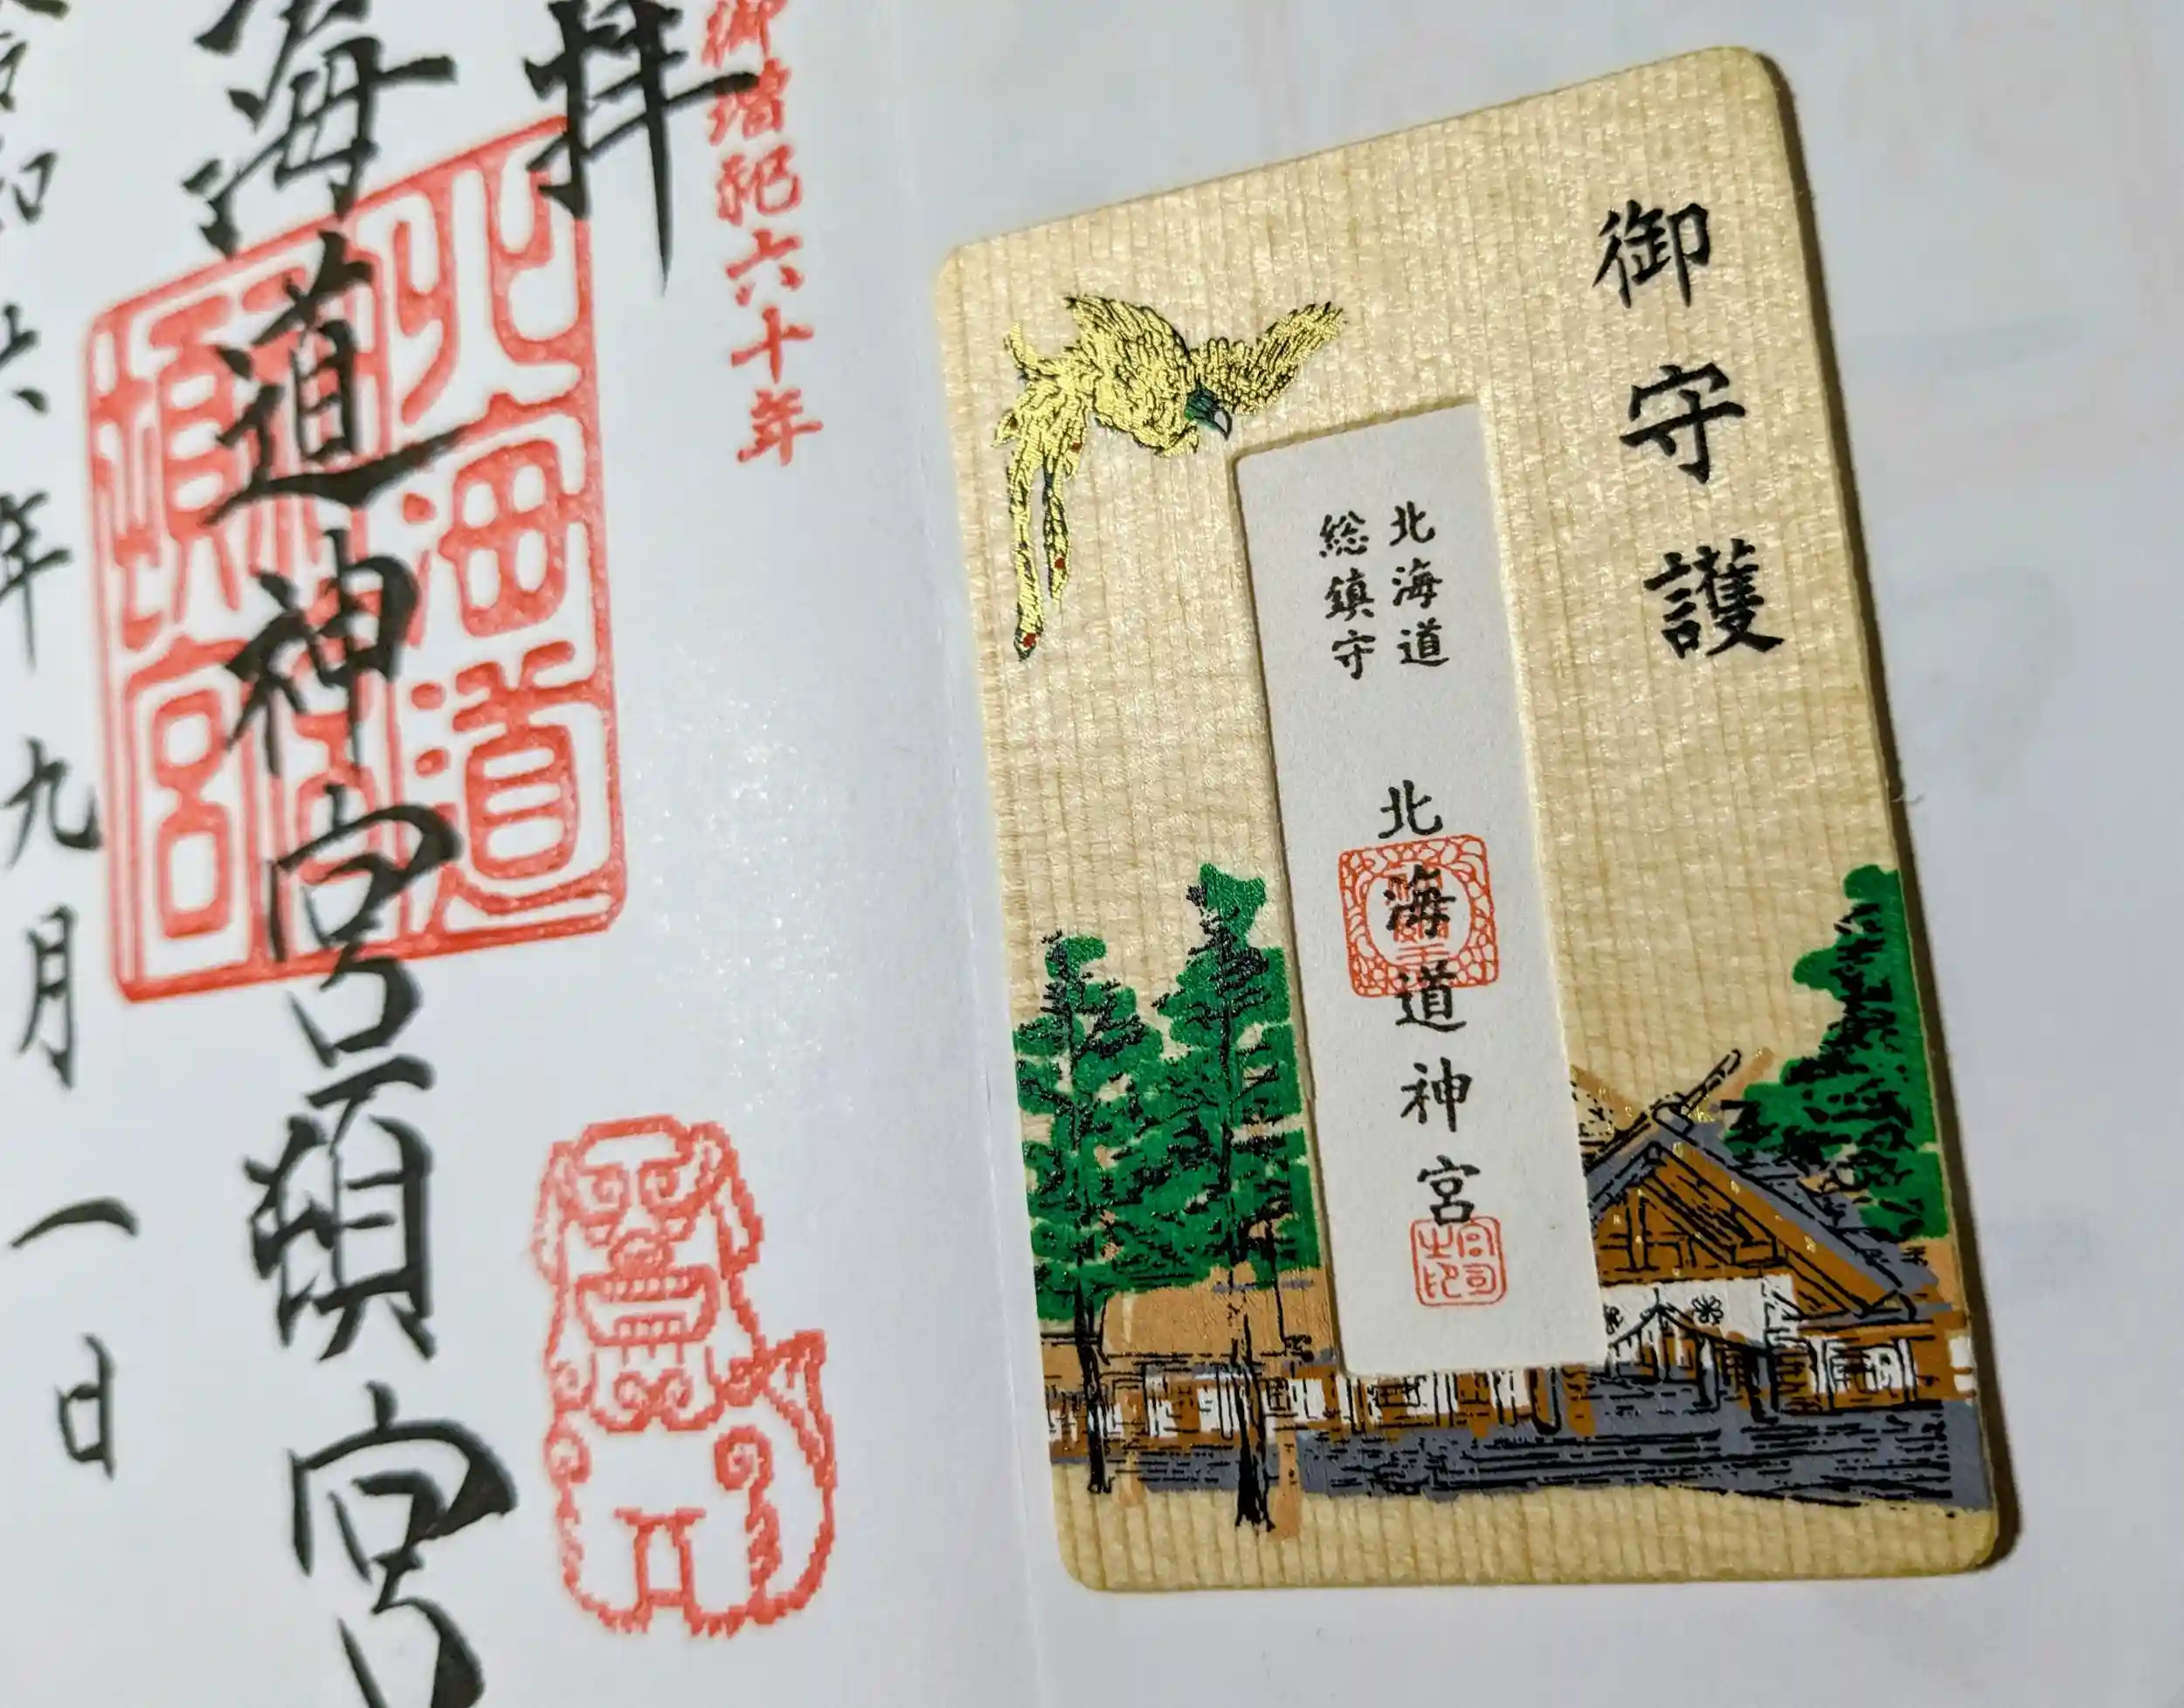 御守護
北海道
総鎮守
北海道神宮
御増祀六十年
拝
海道神宮頓宮
北海道
神宮
頓宮
令和六年九月一日